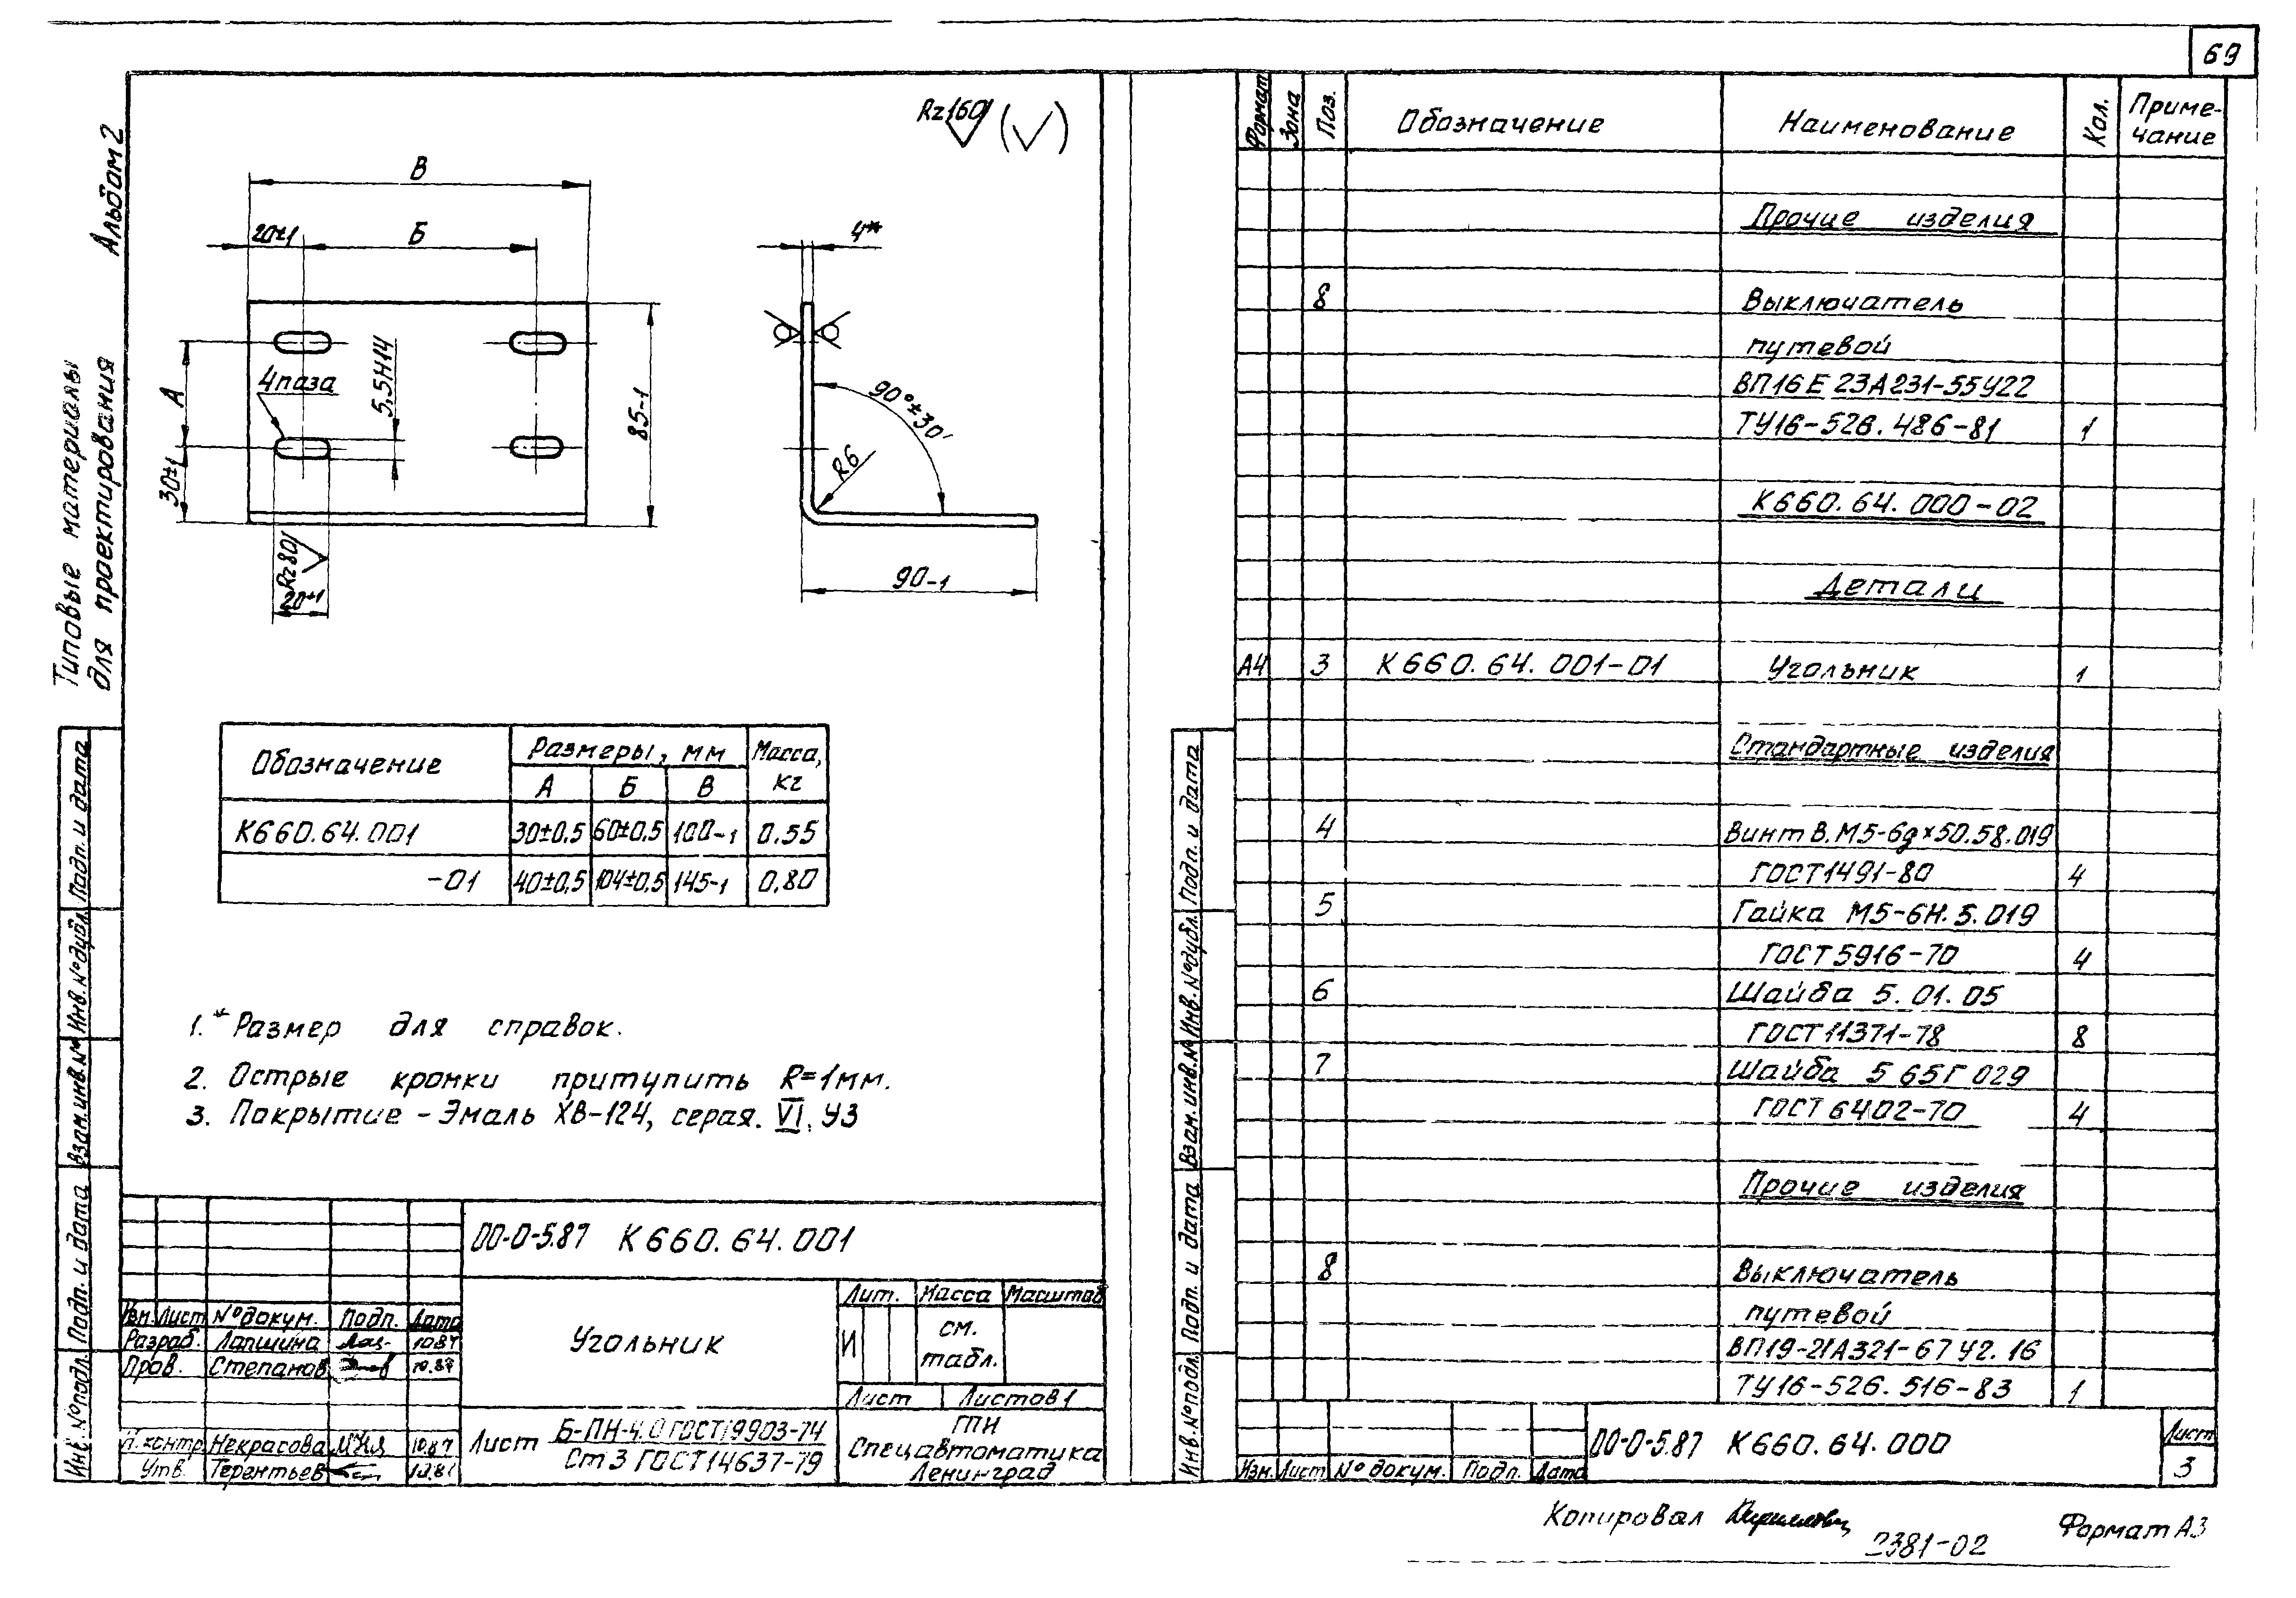 69
Альбом 2
Типовые материалы
для проектирования
Rz160 (√)
В
20±1
Б
4*
А
4 паза
5,5H14
85-1
30±1
Rz80
20±1
90°±30′
R6
90-1
Обозначение
Размеры, мм
Масса, кг
А Б В
К660.64.001 30±0,5 60±0,5 100-1 0.55
-01 40±0,5 104±0,5 145-1 0,80
1. * Размер для справок.
2. Острые кромки притупить R=1мм.
3. Покрытие - Эмаль ХВ-124, серая. VI. У3
00-0-5.87 К660.64.001
Изм. Лист № докум. Подп. Дата
Разраб. Лапшина 10.87
Пров. Степанов 10.87
Н.контр. Некрасова 10.87
Утв. Терентьев 10.87
Угольник
Лит. Масса Масштаб
И см. табл.
Лист Листов 1
Лист Б-ПН-4.0 ГОСТ 19903-74
Ст 3 ГОСТ 14637-79
ГПИ
Спецавтоматика
Ленинград
Инв. № подл. Подп. и дата Взам. инв. № Инв. № дубл. Подп. и дата
Формат Зона Поз. Обозначение Наименование Кол. Приме-
чание
Прочие изделия
8 Выключатель
путевой
ВП16Е 23А231-55У22
ТУ16-526.486-81 1
К660.64.000-02
Детали
А4 3 К660.64.001-01 Угольник 1
Стандартные изделия
4 Винт В.М5-6g×50.58.019
ГОСТ 1491-80 4
5 Гайка М5-6Н.5.019
ГОСТ 5916-70 4
6 Шайба 5.01.05
ГОСТ 11371-78 8
7 Шайба 5 65Г 029
ГОСТ 6402-70 4
Прочие изделия
8 Выключатель
путевой
ВП19-21А321-67У2.16
ТУ16-526.516-83 1
Инв. № подл. Подп. и дата Взам. инв. № Инв. № дубл. Подп. и дата
00-0-5.87 К660.64.000
Лист
3
Изм. Лист № докум. Подп. Дата
Копировал
2381-02
Формат А3